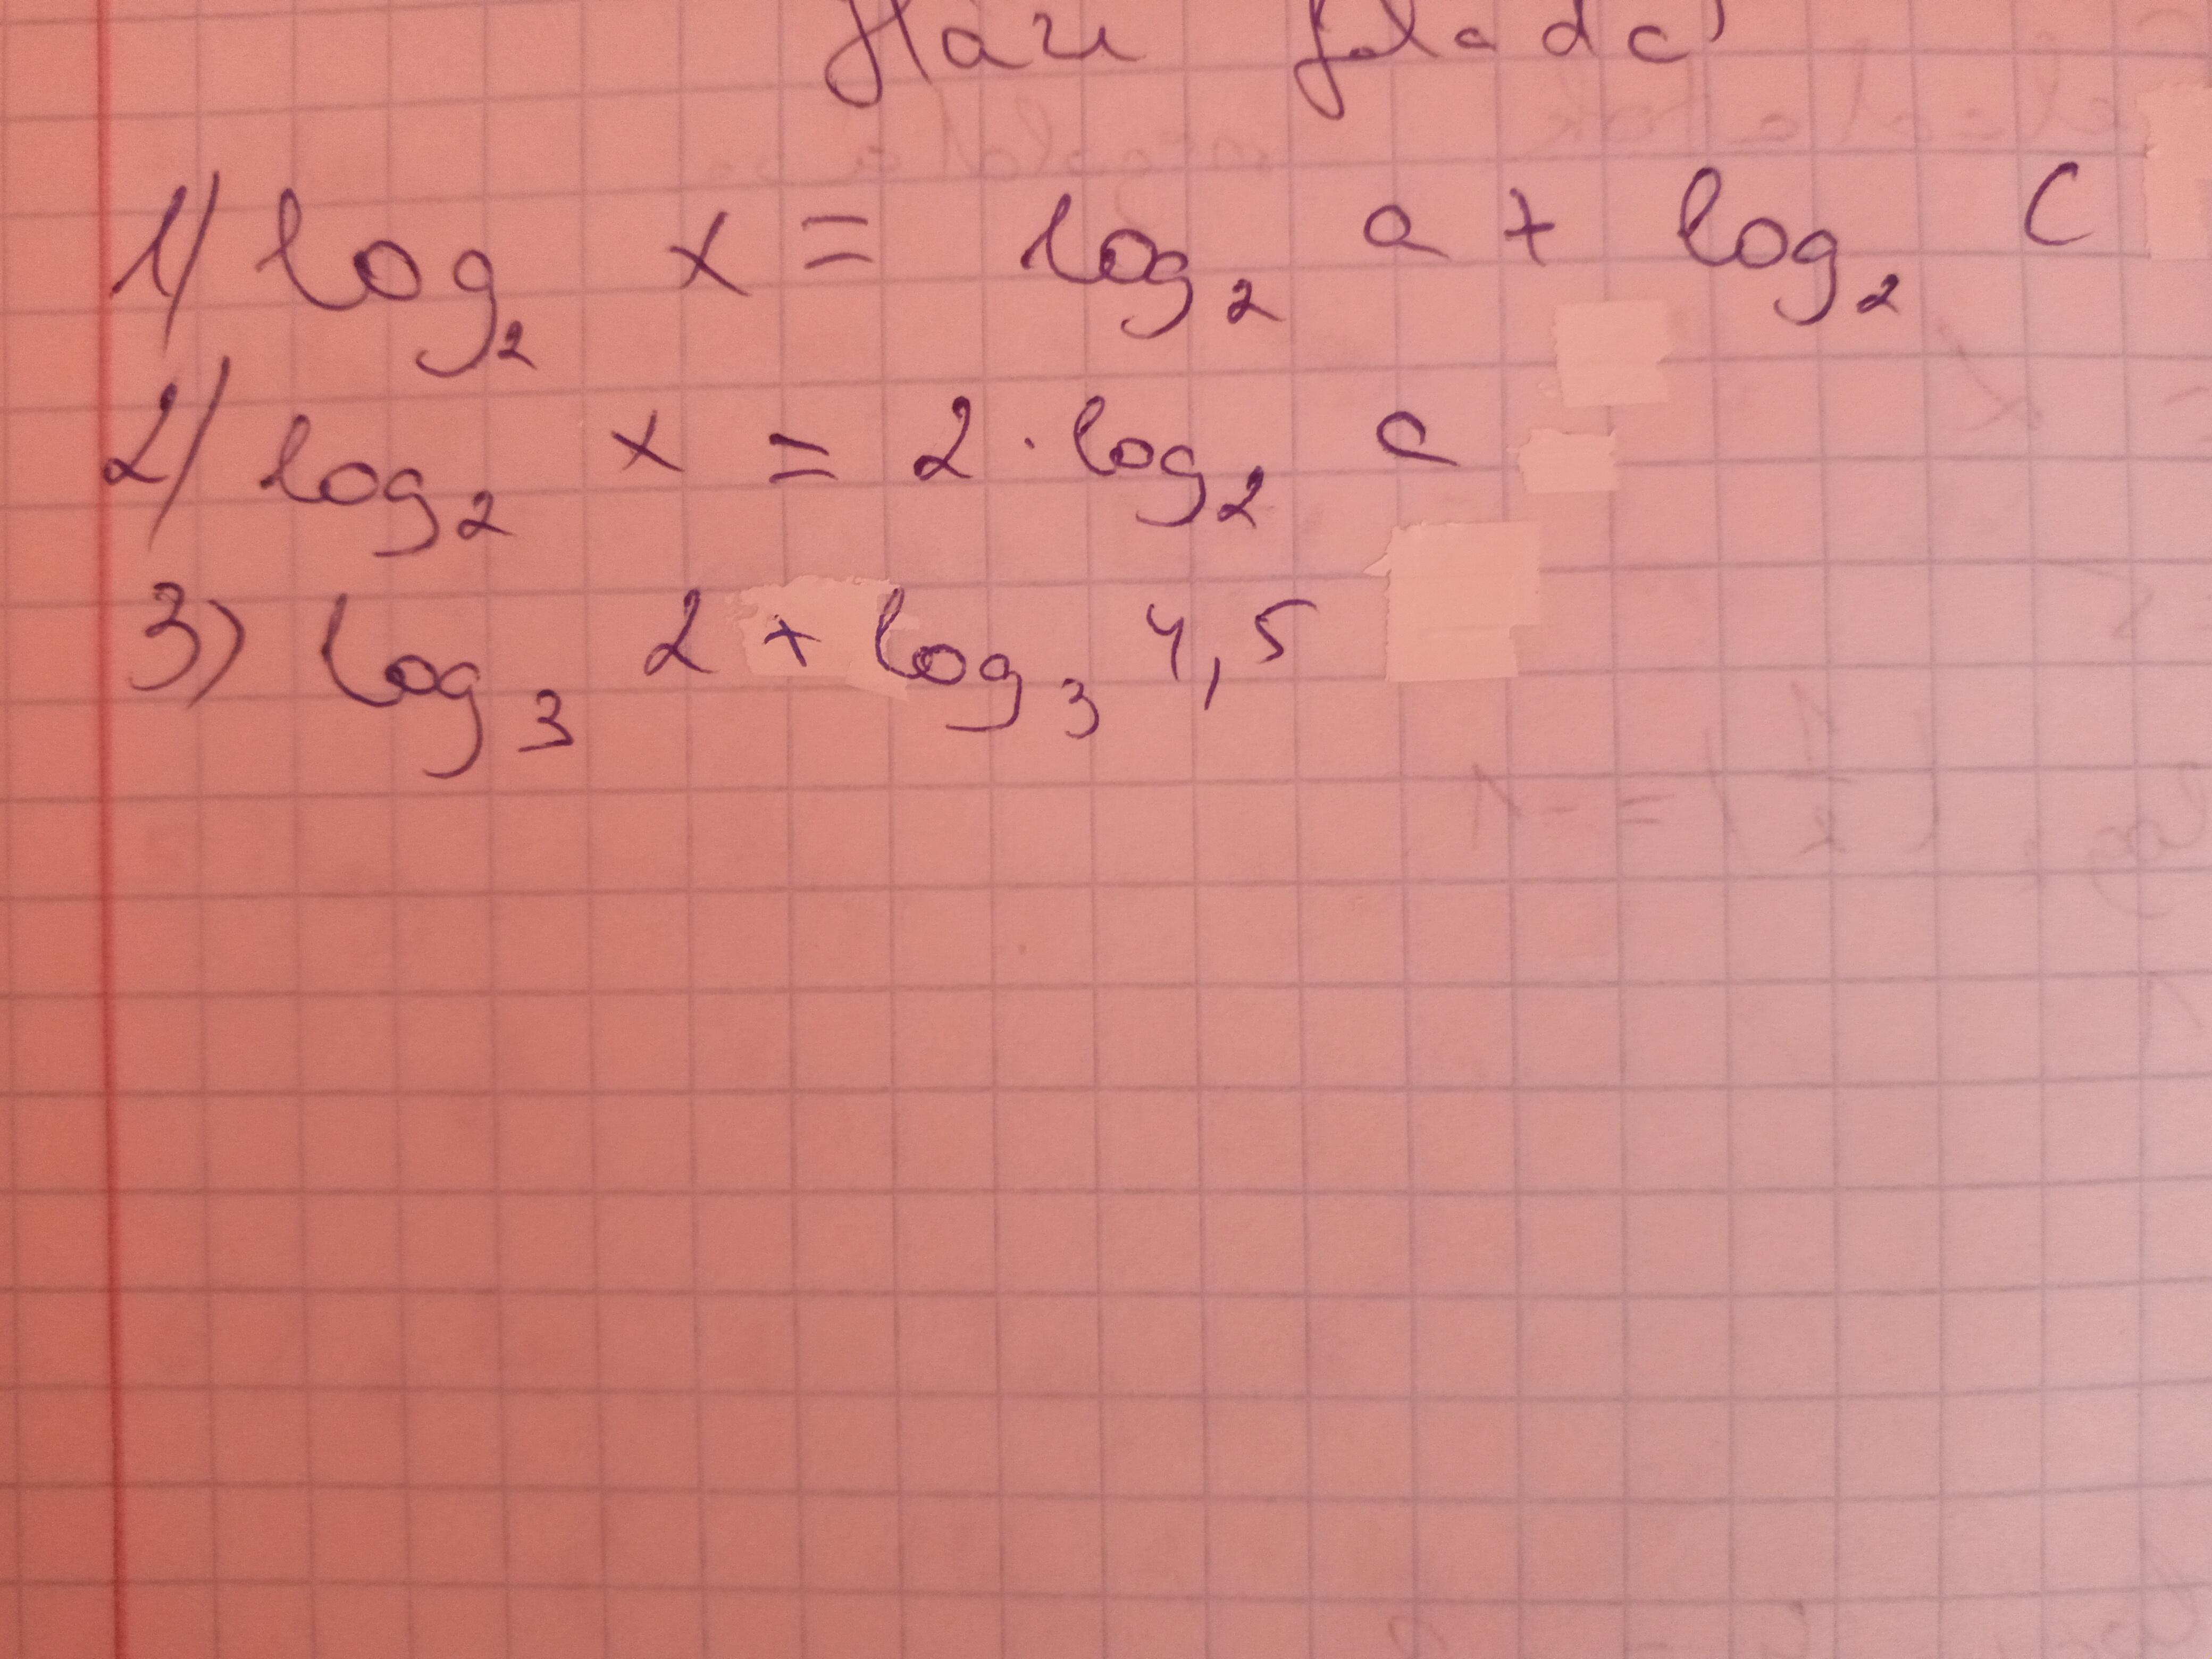 Házi felada
1) log₂ x = log₂ a + log₂ c
2) log₂ x = 2 · log₂ a
3) log₃ 2 + log₃ 4,5